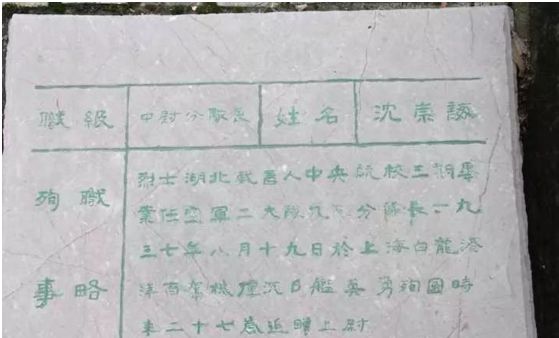 職級 中尉分隊長 姓名 沈崇誨
殉職
事略
烈士湖北武昌人中央航校三期畢
業任空軍二大隊九 分隊長一九
三七年八月十九日於上海白龍港
洋面駕機撞沉日艦英勇殉國時
年二十七歲追贈上尉